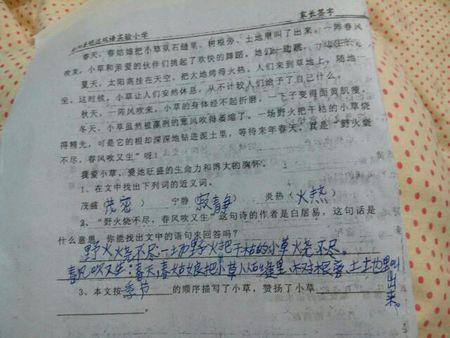 实验小学 家长签字
春天，春姑娘把小草从石缝里、树根旁、土地里叫了出来，一阵春风
吹来，小草和亲爱的伙伴们挑起了欢快的舞蹈。她们一边跳，
夏天，太阳高挂在天空，把大地烤得火热，人们来到草地上，随地一
坐，这时候，小草让人们安然休息，从不计较人们给予了自己什么。
秋天，一阵风吹来，小草的身体经不起折磨，一下子变得面黄肌瘦。
冬天，小草虽然被凛冽的寒风吹得萎缩了，一场野火把干枯的小草烧
得精光，可是它的根却深深地钻进泥土里，等待来年春天，真是“野火烧
不尽，春风吹又生”呀！
我爱小草，爱她旺盛的生命力和博大的胸怀。
1、在文中找出下列词的近义词。
茂盛（茂密） 宁静（寂静） 炎热（火热）
2、“野火烧不尽，春风吹又生”这句诗的作者是白居易，这句话是
什么意思，你能找出文中的语句来回答吗？
野火烧不尽:一场野火把干枯的小草烧不尽。
春风吹又生:春天,春姑娘把小草从石缝里、树根旁、土地里叫
出来。
3、本文按季节的顺序描写了小草，赞扬了小草